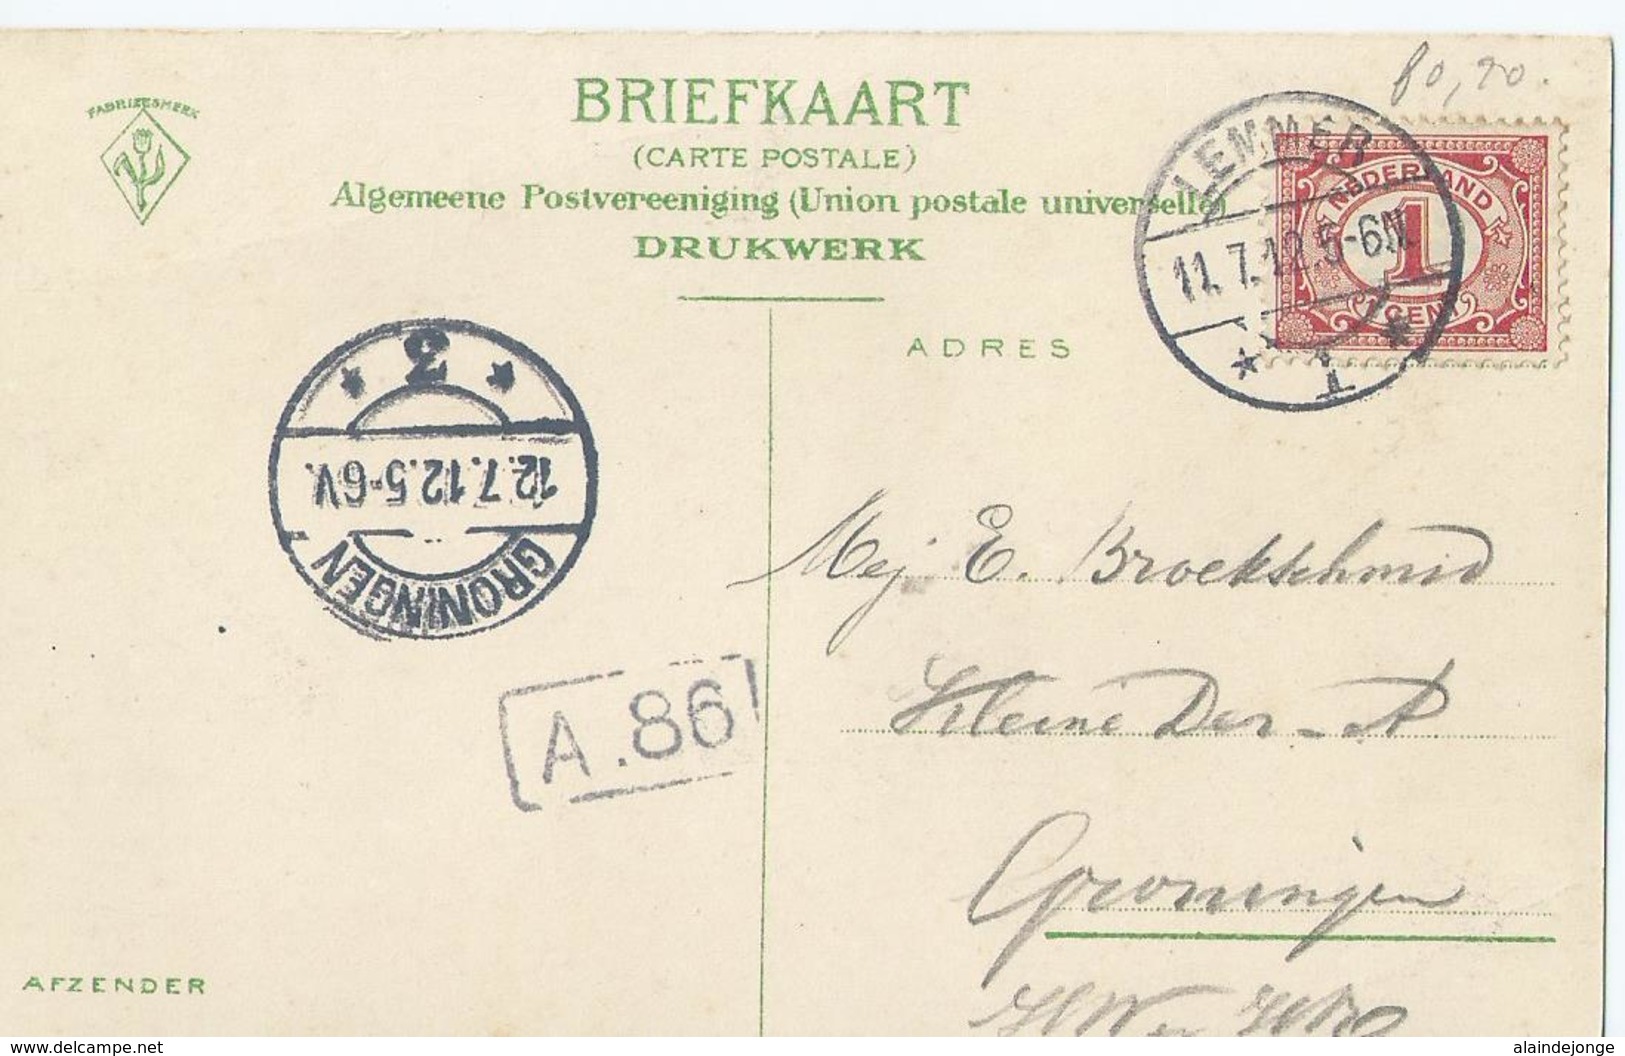 80,20.
FABRIEKSMERK
BRIEFKAART
(CARTE POSTALE)
Algemeene Postvereeniging (Union postale universelle)
DRUKWERK
LEMMER
11.7.12.5-6N
1
NEDERLAND
1
CENT
ADRES
2
12.7.12.5-6V.
GRONINGEN
Mej E. Broekschmid
A.86
Kleine Der-A
Groningen
AFZENDER
delcampe.net
alaindejonge